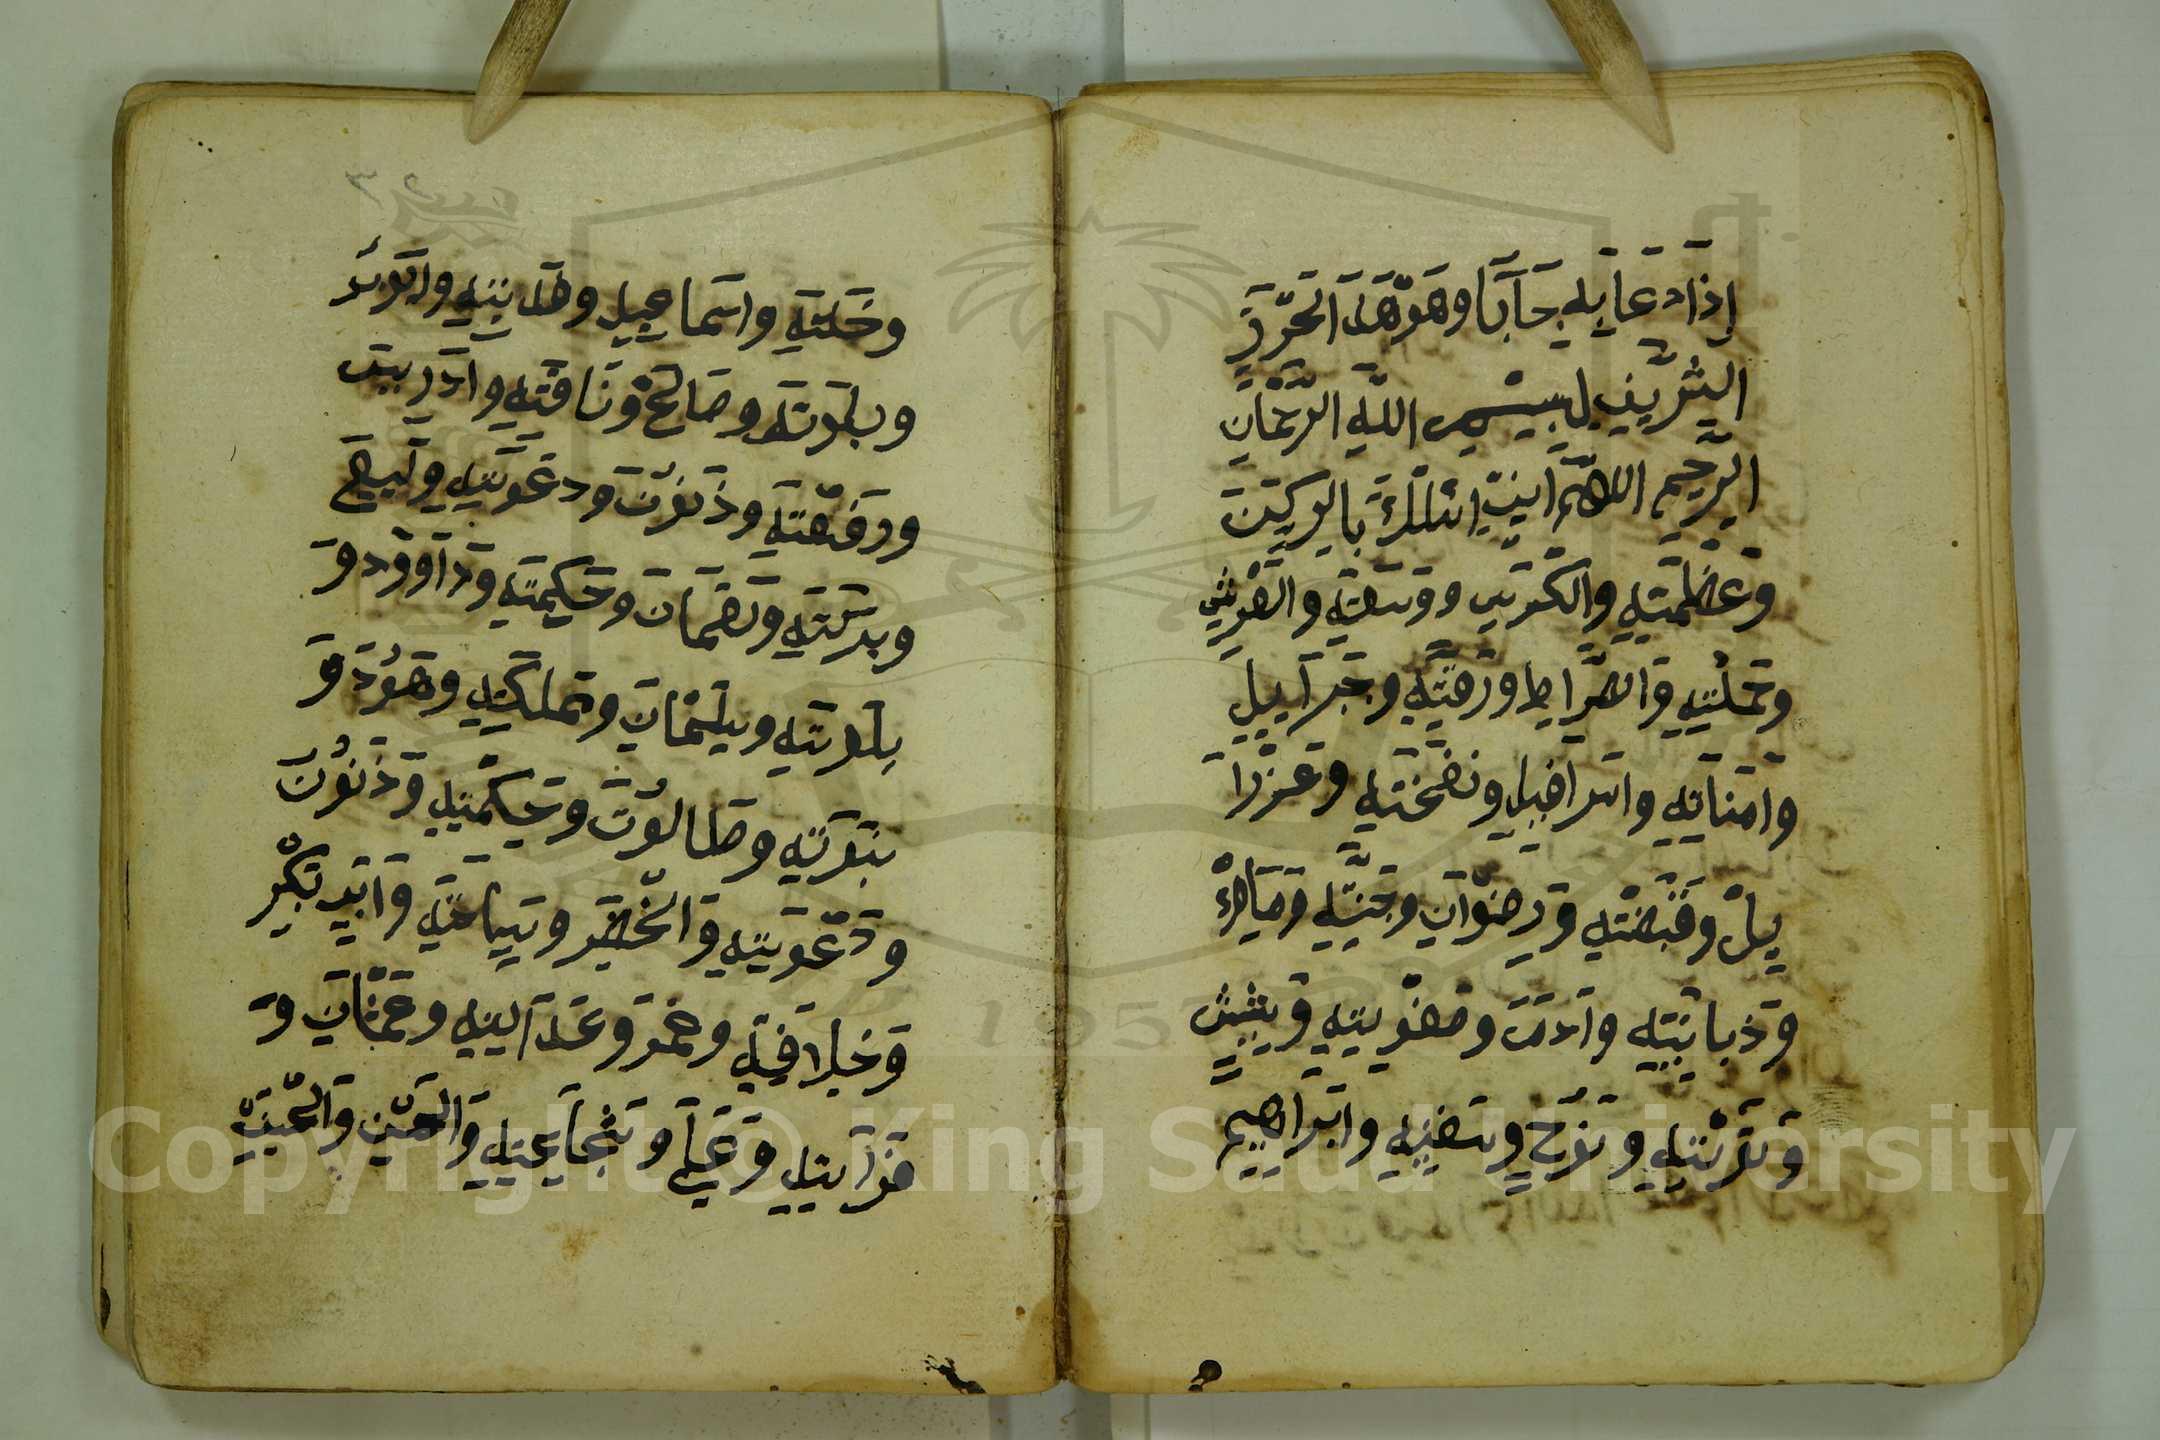 إذا دعا به جابا وهو هذا الحرز
الشريف بسم الله الرحمان
الرحيم اللهم اني اسئلك بالركن
وعظمته والكرسي ووسعته والعرش
وحملته والصراط ورقته وجبرآييل
وامناته واسرافيل ونفخته وعزرا
ييل وقبضته ورضوان وجنته ومالك
وذبانيته وآدم وصفوته وشيش
ونوح وسفينه وابراهيم
وخلته واسماعيل واىوب
وبلوته وصالح وناقته وادريس
ورفعته وذنون ودعوته واليسع
ولقمان وحكيمته وداوود و
وسليمان ومملكته وهود و
وطالوت وحكمته وذنون
ودعوته والخضر وسياحته وابي بكر
وخلافته وعمر وعدالته وعثمان و
قرآيته وعلي وشجاعيته والحسن والحسين
Copyright © King Saud University
1957